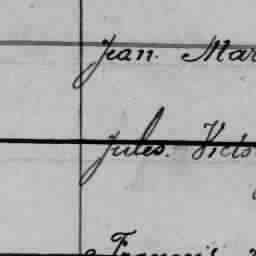 Jean. Mar
Jules. Victo
Franç